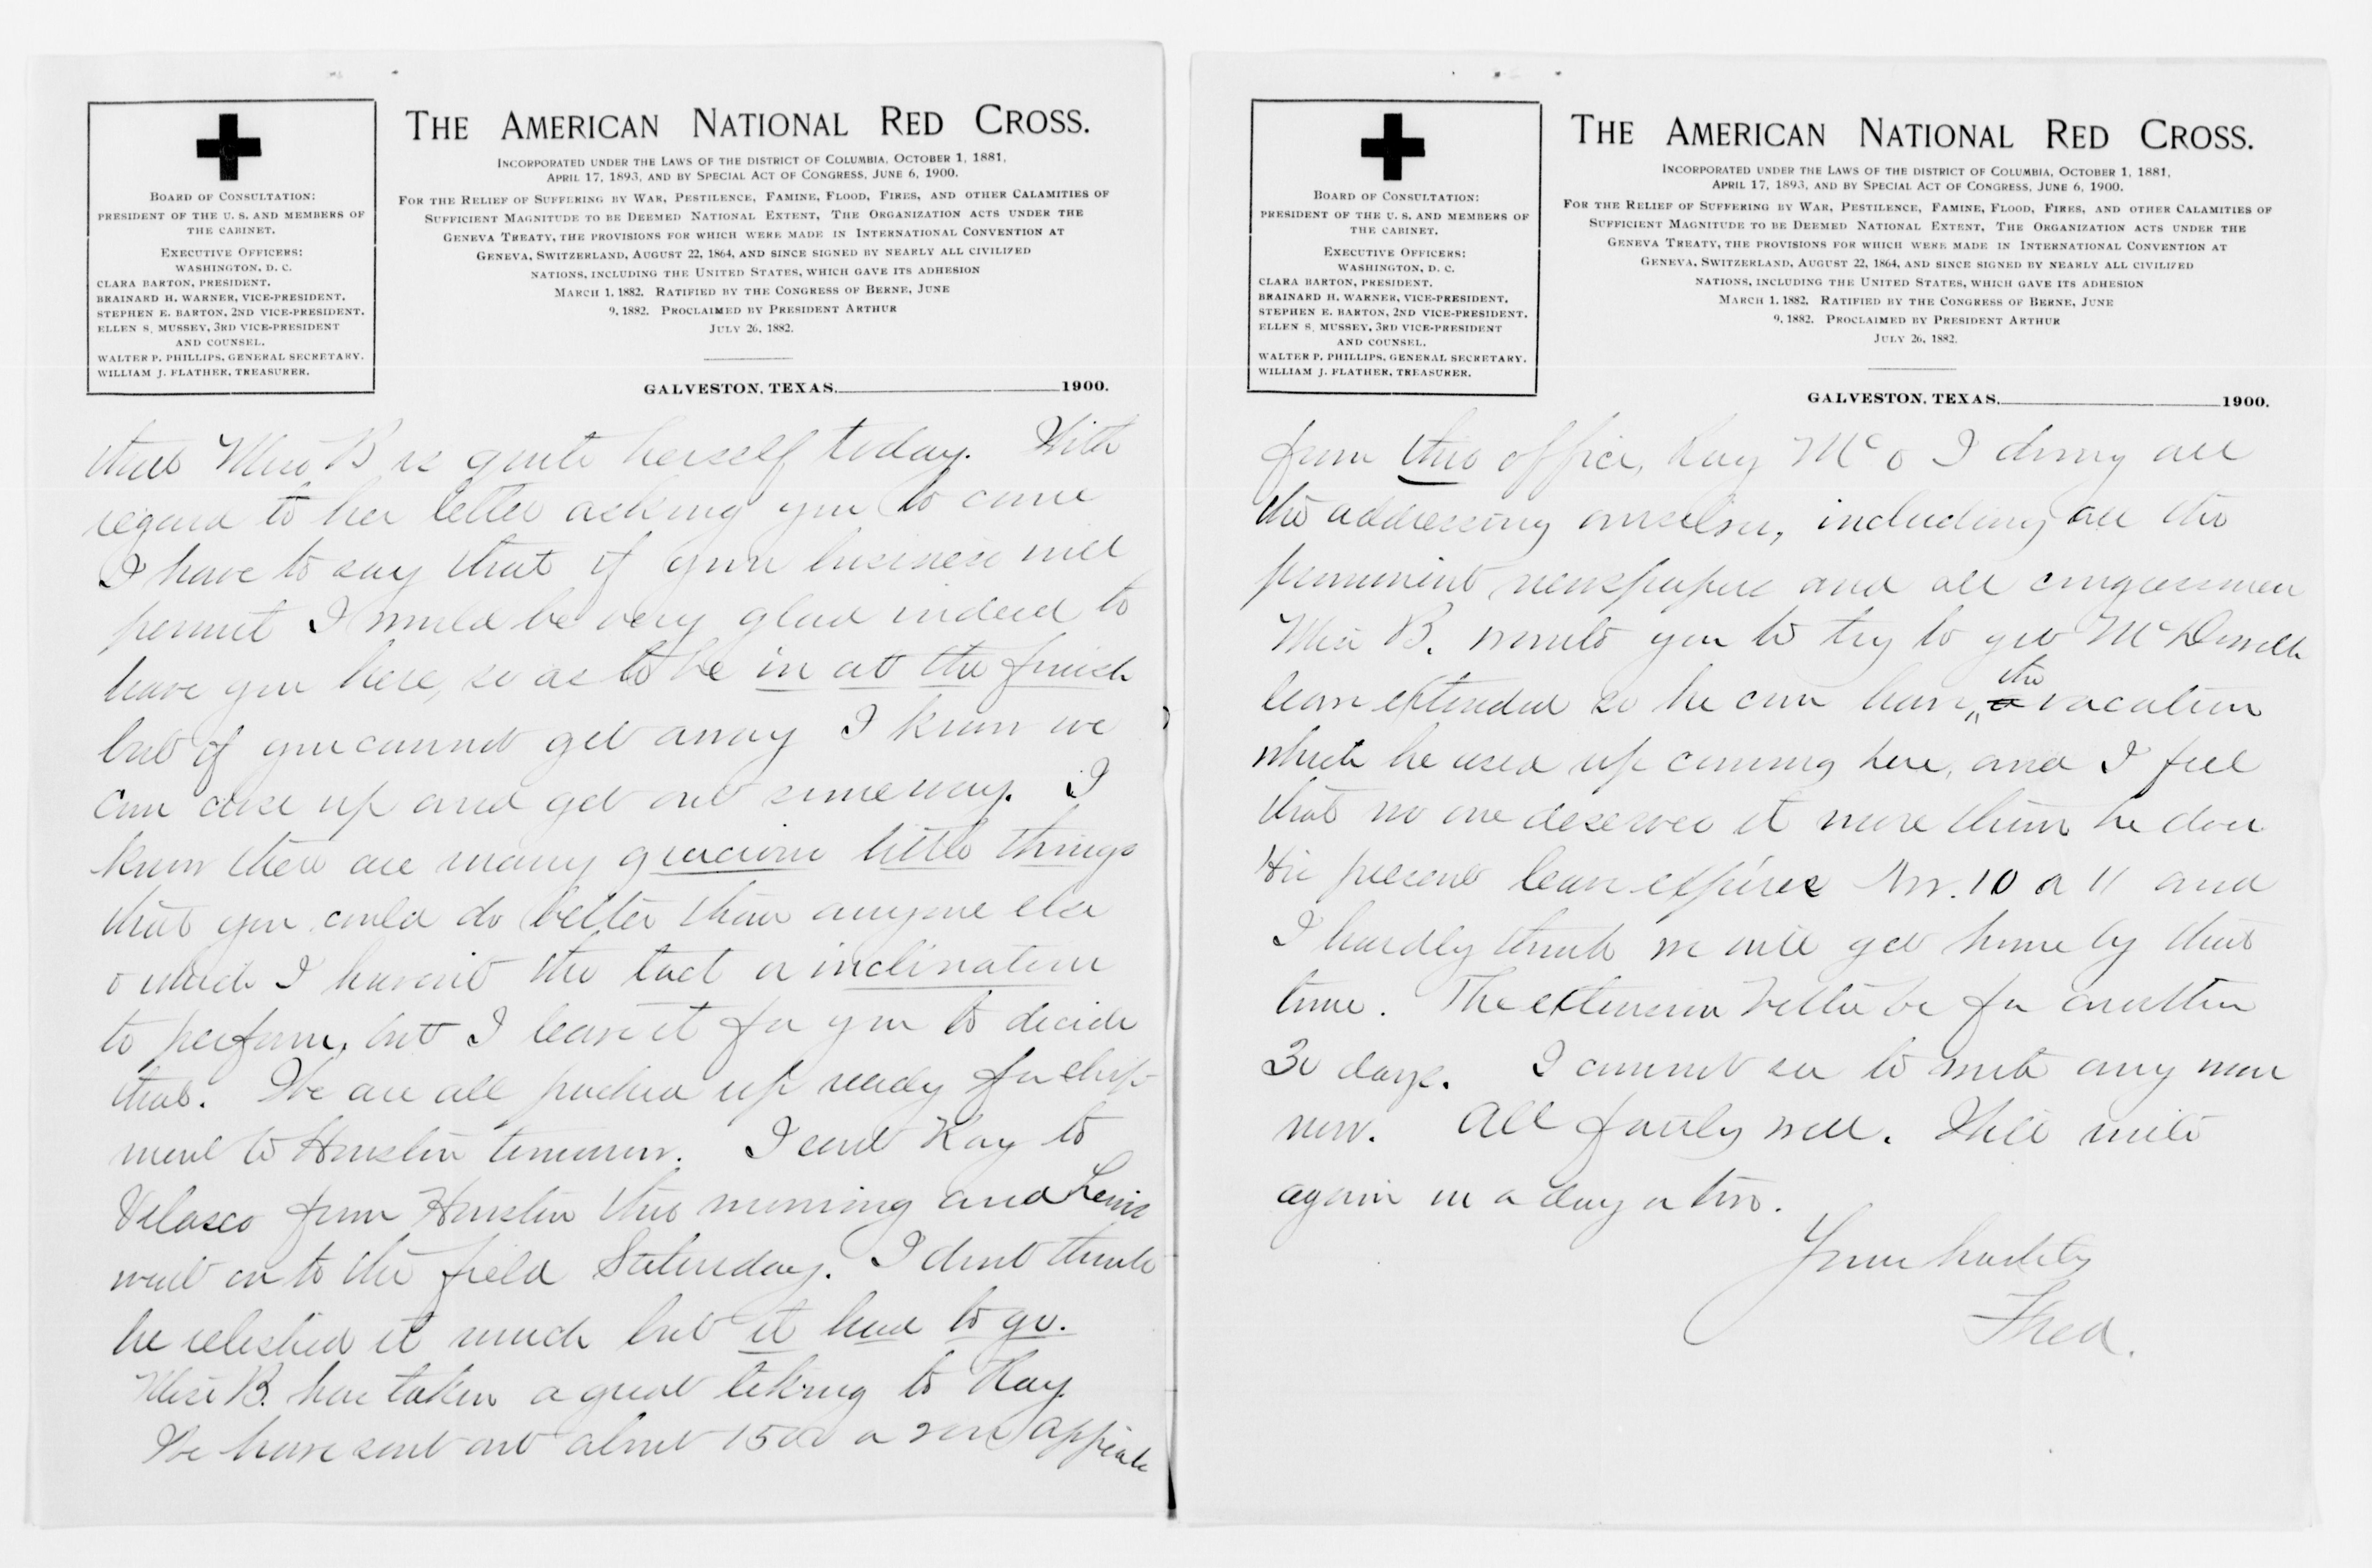 BOARD OF CONSULTATION:
PRESIDENT OF THE U. S. AND MEMBERS OF
THE CABINET.
EXECUTIVE OFFICERS:
WASHINGTON, D. C.
CLARA BARTON, PRESIDENT.
BRAINARD H. WARNER, VICE-PRESIDENT.
STEPHEN E. BARTON, 2ND VICE-PRESIDENT.
ELLEN S. MUSSEY, 3RD VICE-PRESIDENT
AND COUNSEL.
WALTER P. PHILLIPS, GENERAL SECRETARY.
WILLIAM J. FLATHER, TREASURER.
THE AMERICAN NATIONAL RED CROSS.
INCORPORATED UNDER THE LAWS OF THE DISTRICT OF COLUMBIA, OCTOBER 1, 1881,
APRIL 17, 1893, AND BY SPECIAL ACT OF CONGRESS, JUNE 6, 1900.
FOR THE RELIEF OF SUFFERING BY WAR, PESTILENCE, FAMINE, FLOOD, FIRES, AND OTHER CALAMITIES OF
SUFFICIENT MAGNITUDE TO BE DEEMED NATIONAL EXTENT, THE ORGANIZATION ACTS UNDER THE
GENEVA TREATY, THE PROVISIONS FOR WHICH WERE MADE IN INTERNATIONAL CONVENTION AT
GENEVA, SWITZERLAND, AUGUST 22, 1864, AND SINCE SIGNED BY NEARLY ALL CIVILIZED
NATIONS, INCLUDING THE UNITED STATES, WHICH GAVE ITS ADHESION
MARCH 1, 1882. RATIFIED BY THE CONGRESS OF BERNE, JUNE
9, 1882. PROCLAIMED BY PRESIDENT ARTHUR
JULY 26, 1882.
GALVESTON, TEXAS, 1900.
that Miss B is quite herself today. With
regard to her letter asking you to come
I have to say that if your business will
permit I would be very glad indeed to
have you here, so as to be in at the finish
but if you cannot get away I know we
can close up and get out someway. I
know there are many gracious little things
that you could do better than anyone else
& which I havent the tact or inclination
to perform, but I leave it for you to decide
that. We are all packed up ready for ship-
ment to Houston tomorrow. I send Ray to
Velasco from Houston this morning and Lewis
went on to the field Saturday. I dont think
he relished it much but it had to go.
Miss B. has taken a great liking to Ray
We have sent out about 1500 or more appeals
BOARD OF CONSULTATION:
PRESIDENT OF THE U. S. AND MEMBERS OF
THE CABINET.
EXECUTIVE OFFICERS:
WASHINGTON, D. C.
CLARA BARTON, PRESIDENT.
BRAINARD H. WARNER, VICE-PRESIDENT.
STEPHEN E. BARTON, 2ND VICE-PRESIDENT.
ELLEN S. MUSSEY, 3RD VICE-PRESIDENT
AND COUNSEL.
WALTER P. PHILLIPS, GENERAL SECRETARY.
WILLIAM J. FLATHER, TREASURER.
THE AMERICAN NATIONAL RED CROSS.
INCORPORATED UNDER THE LAWS OF THE DISTRICT OF COLUMBIA, OCTOBER 1, 1881,
APRIL 17, 1893, AND BY SPECIAL ACT OF CONGRESS, JUNE 6, 1900.
FOR THE RELIEF OF SUFFERING BY WAR, PESTILENCE, FAMINE, FLOOD, FIRES, AND OTHER CALAMITIES OF
SUFFICIENT MAGNITUDE TO BE DEEMED NATIONAL EXTENT, THE ORGANIZATION ACTS UNDER THE
GENEVA TREATY, THE PROVISIONS FOR WHICH WERE MADE IN INTERNATIONAL CONVENTION AT
GENEVA, SWITZERLAND, AUGUST 22, 1864, AND SINCE SIGNED BY NEARLY ALL CIVILIZED
NATIONS, INCLUDING THE UNITED STATES, WHICH GAVE ITS ADHESION
MARCH 1, 1882. RATIFIED BY THE CONGRESS OF BERNE, JUNE
9, 1882. PROCLAIMED BY PRESIDENT ARTHUR
JULY 26, 1882.
GALVESTON, TEXAS, 1900.
from this office, Ray Mc & I doing all
the addressing ourselves, including all the
prominent newspapers and all congressmen
Miss B. wants you to try to get McDowells
leave extended so he can have the a vacation
which he used up coming here, and I feel
that no one deserves it more than he does
His present leave expires Nov. 10 or 11 and
I hardly think we will get home by that
time. The extension better be for another
30 days. I cannot see to write any more
now. All fairly well. Will write
again in a day or two.
Yours hastily
Fred.